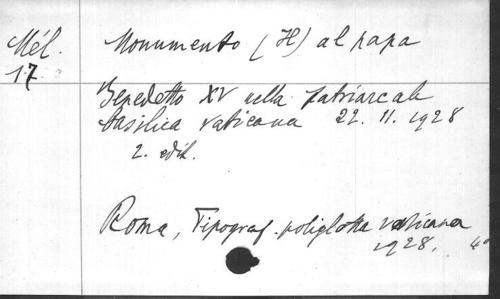 Mél.
17
Monumento (Il) al papa
Benedetto XV nella patriarcale
basilica vaticana 22. 11. 1928
2. edit.
Roma, Tipograf. poliglotta vaticana
1928. 4°